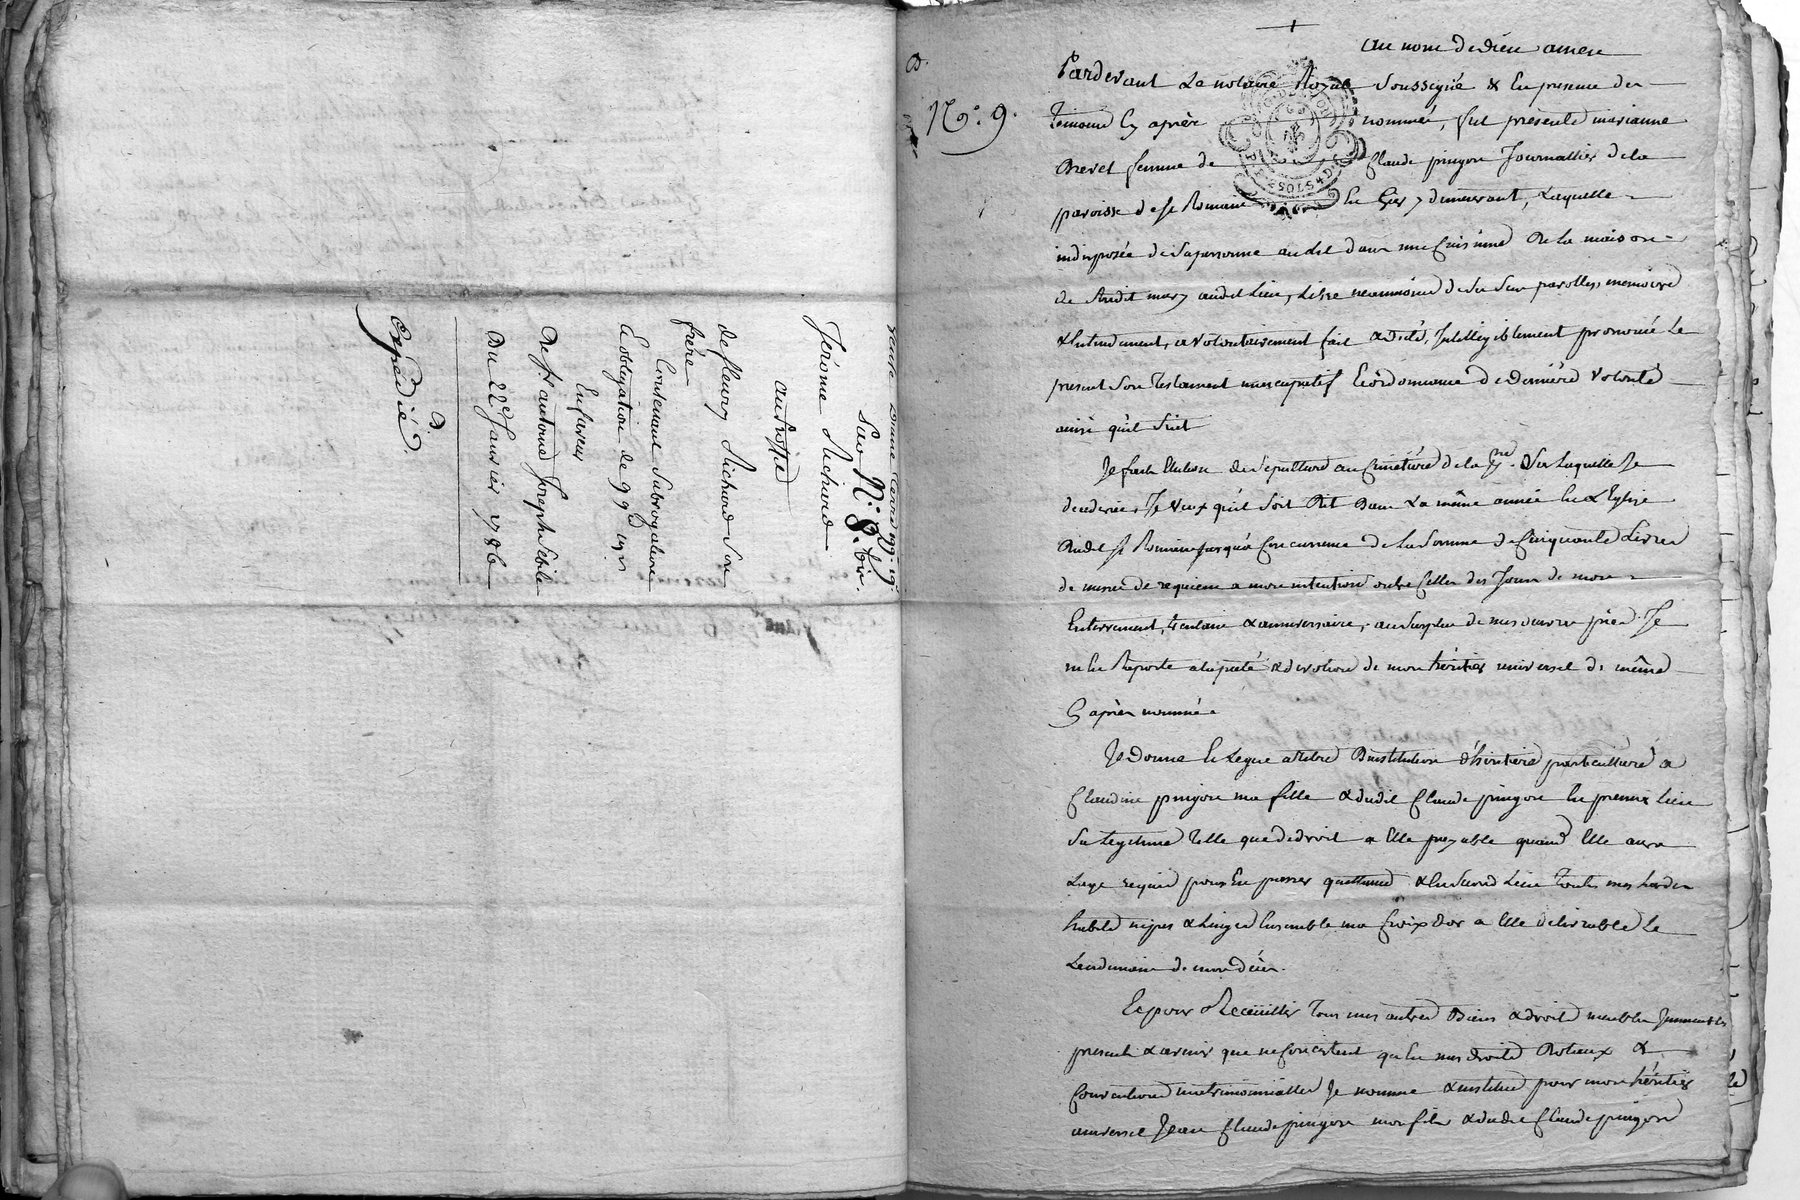 Sav N°. 8. bis.
Jérome Richard
autorisé
de fleury Richard son
frère
Contenant Subrogatoire
& obligation de 99# 15s
Enfaveur
De sr. antoine Joseph Sebile
Du 22e Janvier 1786
D.
Expédié.
D.
N°. 9.
au nom de dieu amen
Pardevant Le notaire Royal Soussigné & En presence des
temoins Cy après nommés, fut présente marianne
Brevet femme de Claude pingon Journallier de la
paroisse de st Romain En Gier y demeurant, Laquelle
indisposée de Sa personne au lit dans une Cuisine De la maison
de Sondit mary audit Lieu, Libre neanmoins de Ses Sens parolles, memoire
& Entendement, a volontairement fait & dicté, Intelligiblement prononcé Le
present Son Testament nuncupatif & ordonnance de derniere volonté
ainsi qu'il Suit
Je fais Election de Sepulture au Cimetiere de la psse. Sur Laquelle Je
decederai, Je veux qu'il Soit Dit Dans La même année En L'Eglise
Dudit st Romain jusqu'a Concurrence de La Somme de Cinquante Livres
de messes de requiem a mon intention outre Celles des Jours de mon
Enterrement, trentaine & anniversaire, au Surplus de mes oeuvres pies Je
m'En Raporte a la pieté & devotion de mon héritier universel de même
Cy après nommé.
Je Donne & Legue a titre D'institution d'héritiere particulliere a
Claudine pingon ma fille & dudit Claude pingon En premier Lieu
Sa Legitime telle que de droit a Elle payable quand Elle aura
L'age requis pour En passer quittance & En Second Lieu toutes mes hardes
habits nipes & Linges Ensemble ma Croix d'or a Elle delivrable Le
Lendemain de mon décès.
Et pour Receüillir tous mes autres Biens & droits meubles Immeubles
presents & avenir que ne Consistent qu'En mes droits Dotaux &
Conventions matrimonialles Je nomme & institue pour mon héritier
universel Jean Claude pingon mon fils & dudit Claude pingon